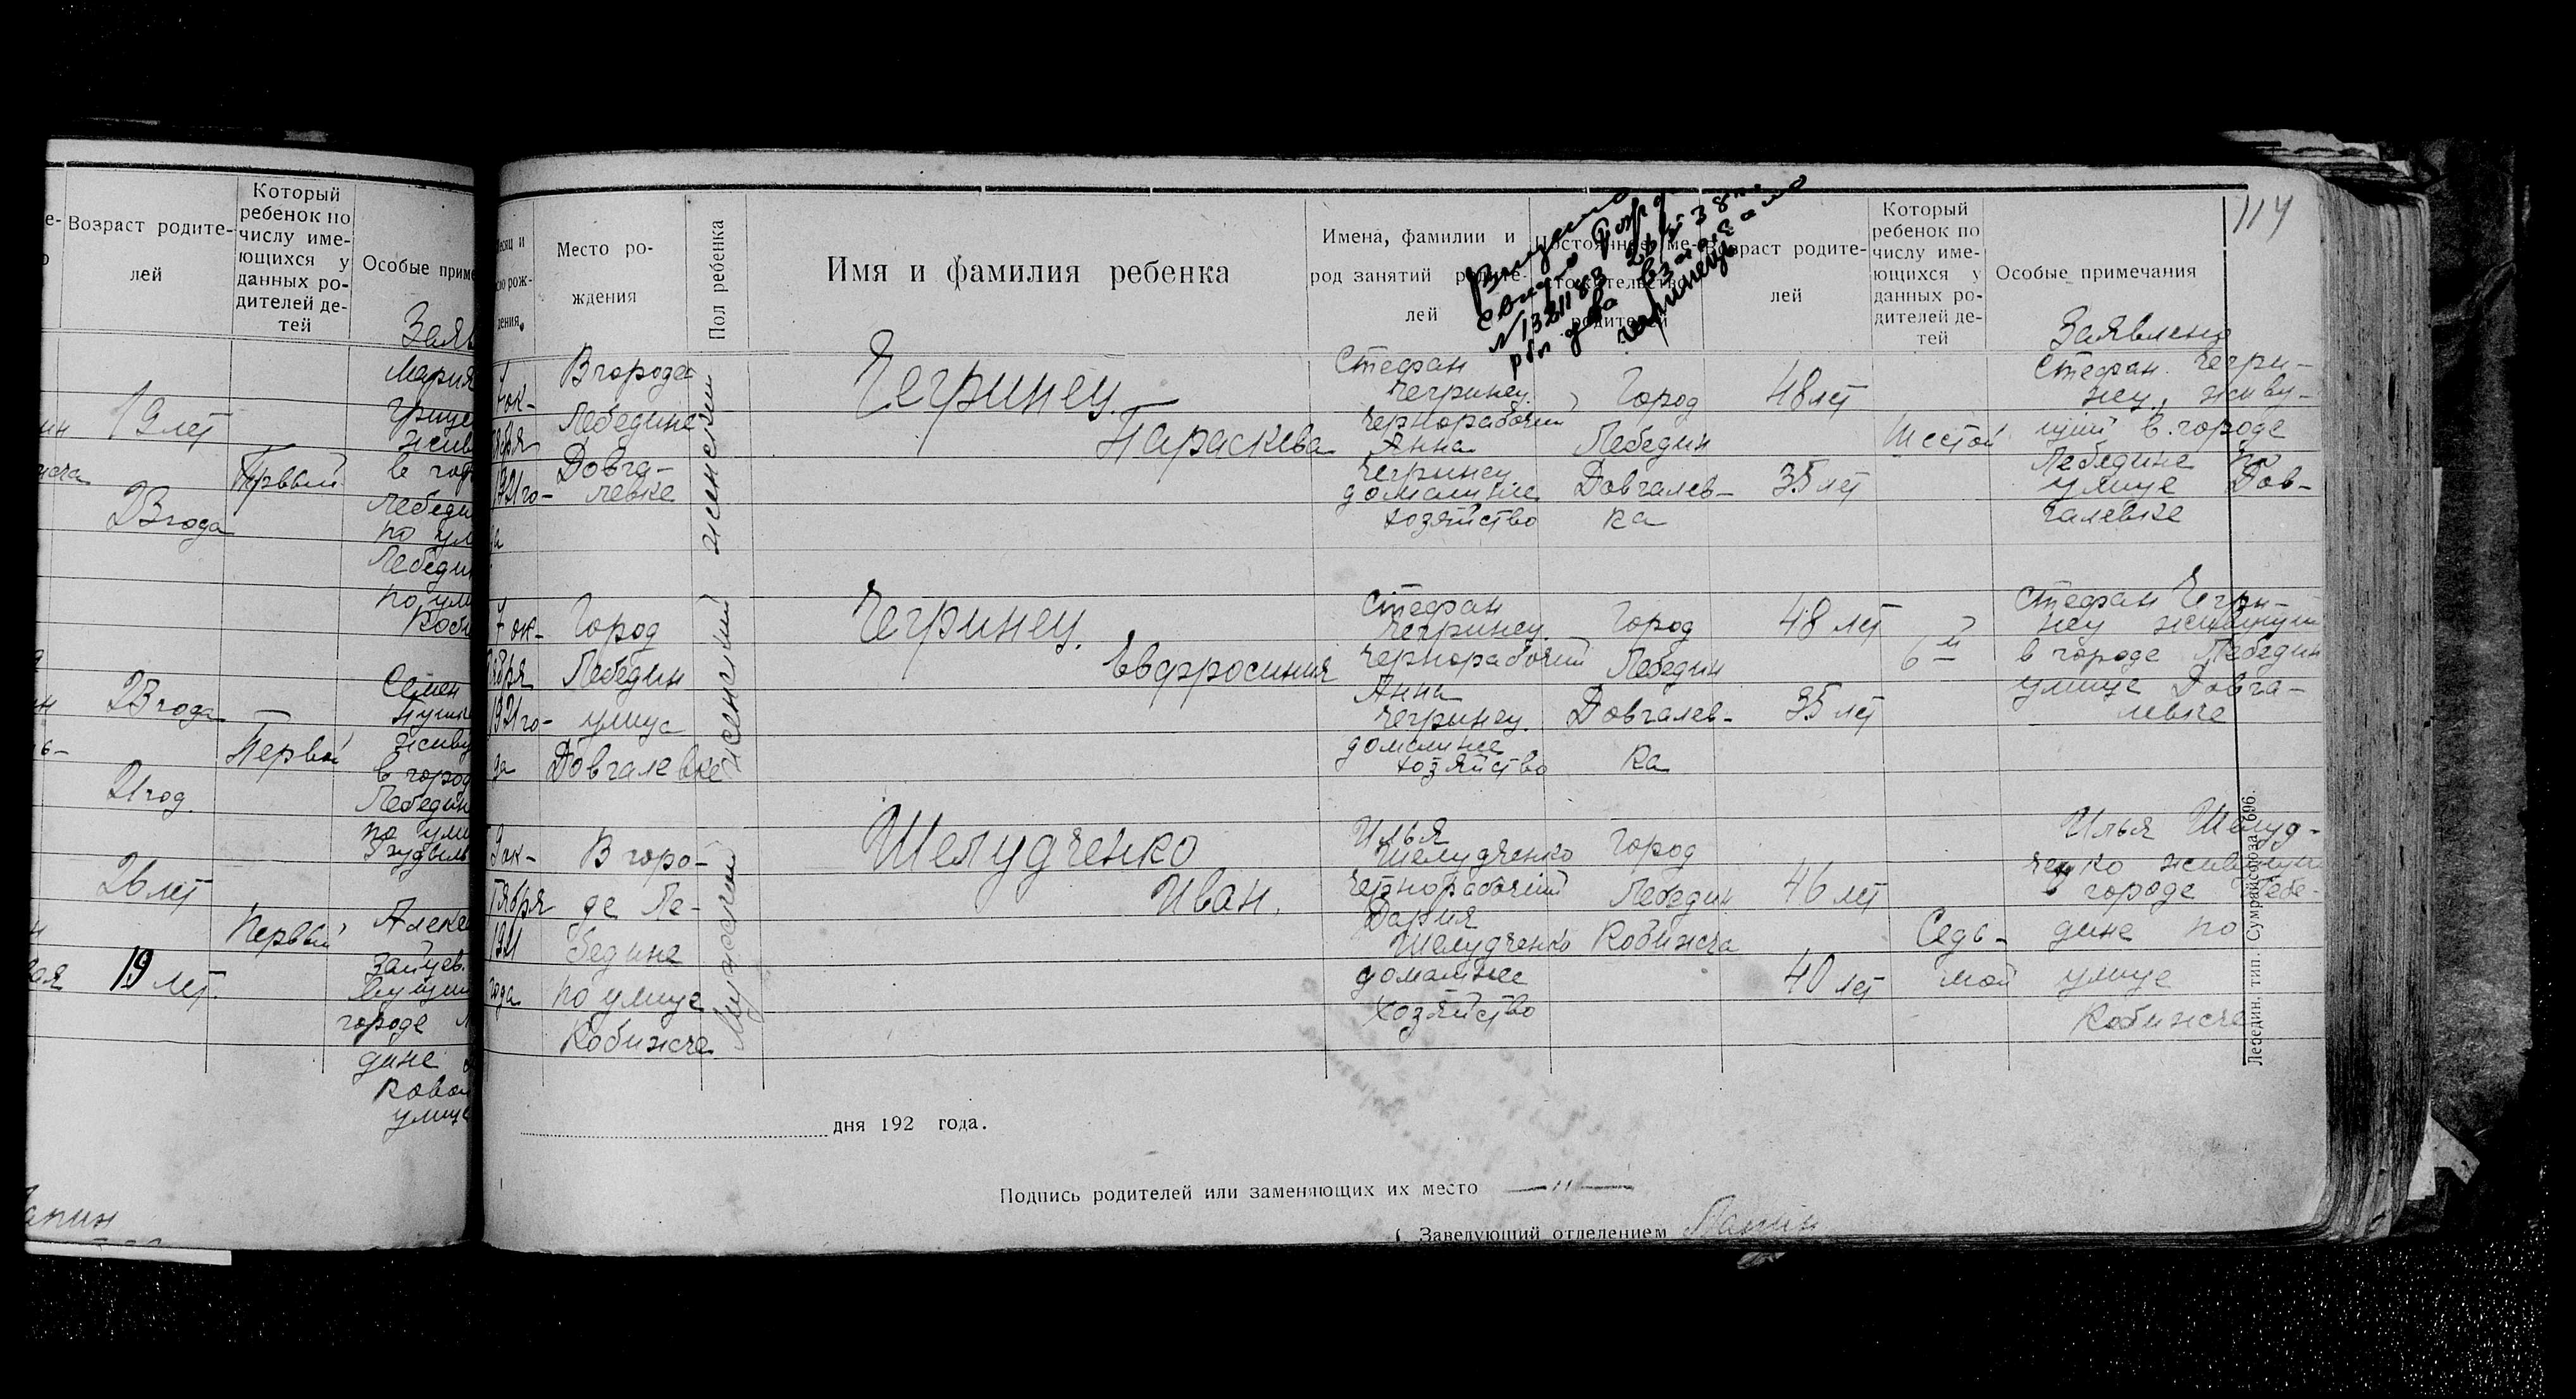 Возраст родите-
лей
Который
ребенок по
числу име-
ющихся у
данных ро-
дителей де-
тей
Особые приме
19 лет
Первый
Мария
23 года
по ул
Лебеди
по ули
23 года
Первый
Семен
в город
Лебедин
по ули
21 год.
26 лет
Первый
Алексе
19 лет.
городе
дине
улице
есяц и
ло рож-
дения
Место ро-
ждения
Пол ребенка
Имя и фамилия ребенка
Имена, фамилии и
род занятий родите-
лей
Постоянное ме-
сто жительство
родителей
Возраст родите-
лей
Который
ребенок по
числу име-
ющихся у
данных ро-
дителей де-
тей
Особые примечания
114
Заявлено
7 ок-
тября
1921 го-
да
В городе
Лебедине
Довга-
левке
женский
Чегринец
Параскева
Стефан
Чегринец.
Чернорабочий
Анна
Чегринец
домашнее
хозяйство
Город
Лебедин
Довгалев-
ка
48 лет
35 лет
Шестой
Стефан Чегри-
нец, живу-
щий в городе
Лебедине по
улице Дов-
галевке
7 ок-
тября
1921 го-
да
Город
Лебедин
улица
Довгалевке
женский
Чегринец.
Евфросиния
Стефан
Чегринец.
чернорабочий
Анна
Чегринец.
домашнее
хозяйство
Город
Лебедин
Довгалев-
ка
48 лет
35 лет
6й
Стефан Чегри-
нец живущий
в городе Лебедин
улице Довга-
левке
9 ок-
тября
1921
года
В горо-
де Ле-
бедине
по улице
Кобижче
Мужеский
Шелудченко
Иван.
Илья
Шелудченко
чернорабочий
Дария
Шелудченко
домашнее
хозяйство
Город
Лебедин
Кобижча
46 лет
40 лет
Седь-
мой
Илья Шелуд-
ченко живущий
в городе Лебе-
дине по
улице
Кобижче
дня 192 года.
Подпись родителей или заменяющих их место —"—
Заведующий отделением
Лебедин., тип. Сумрайсоюза 696.